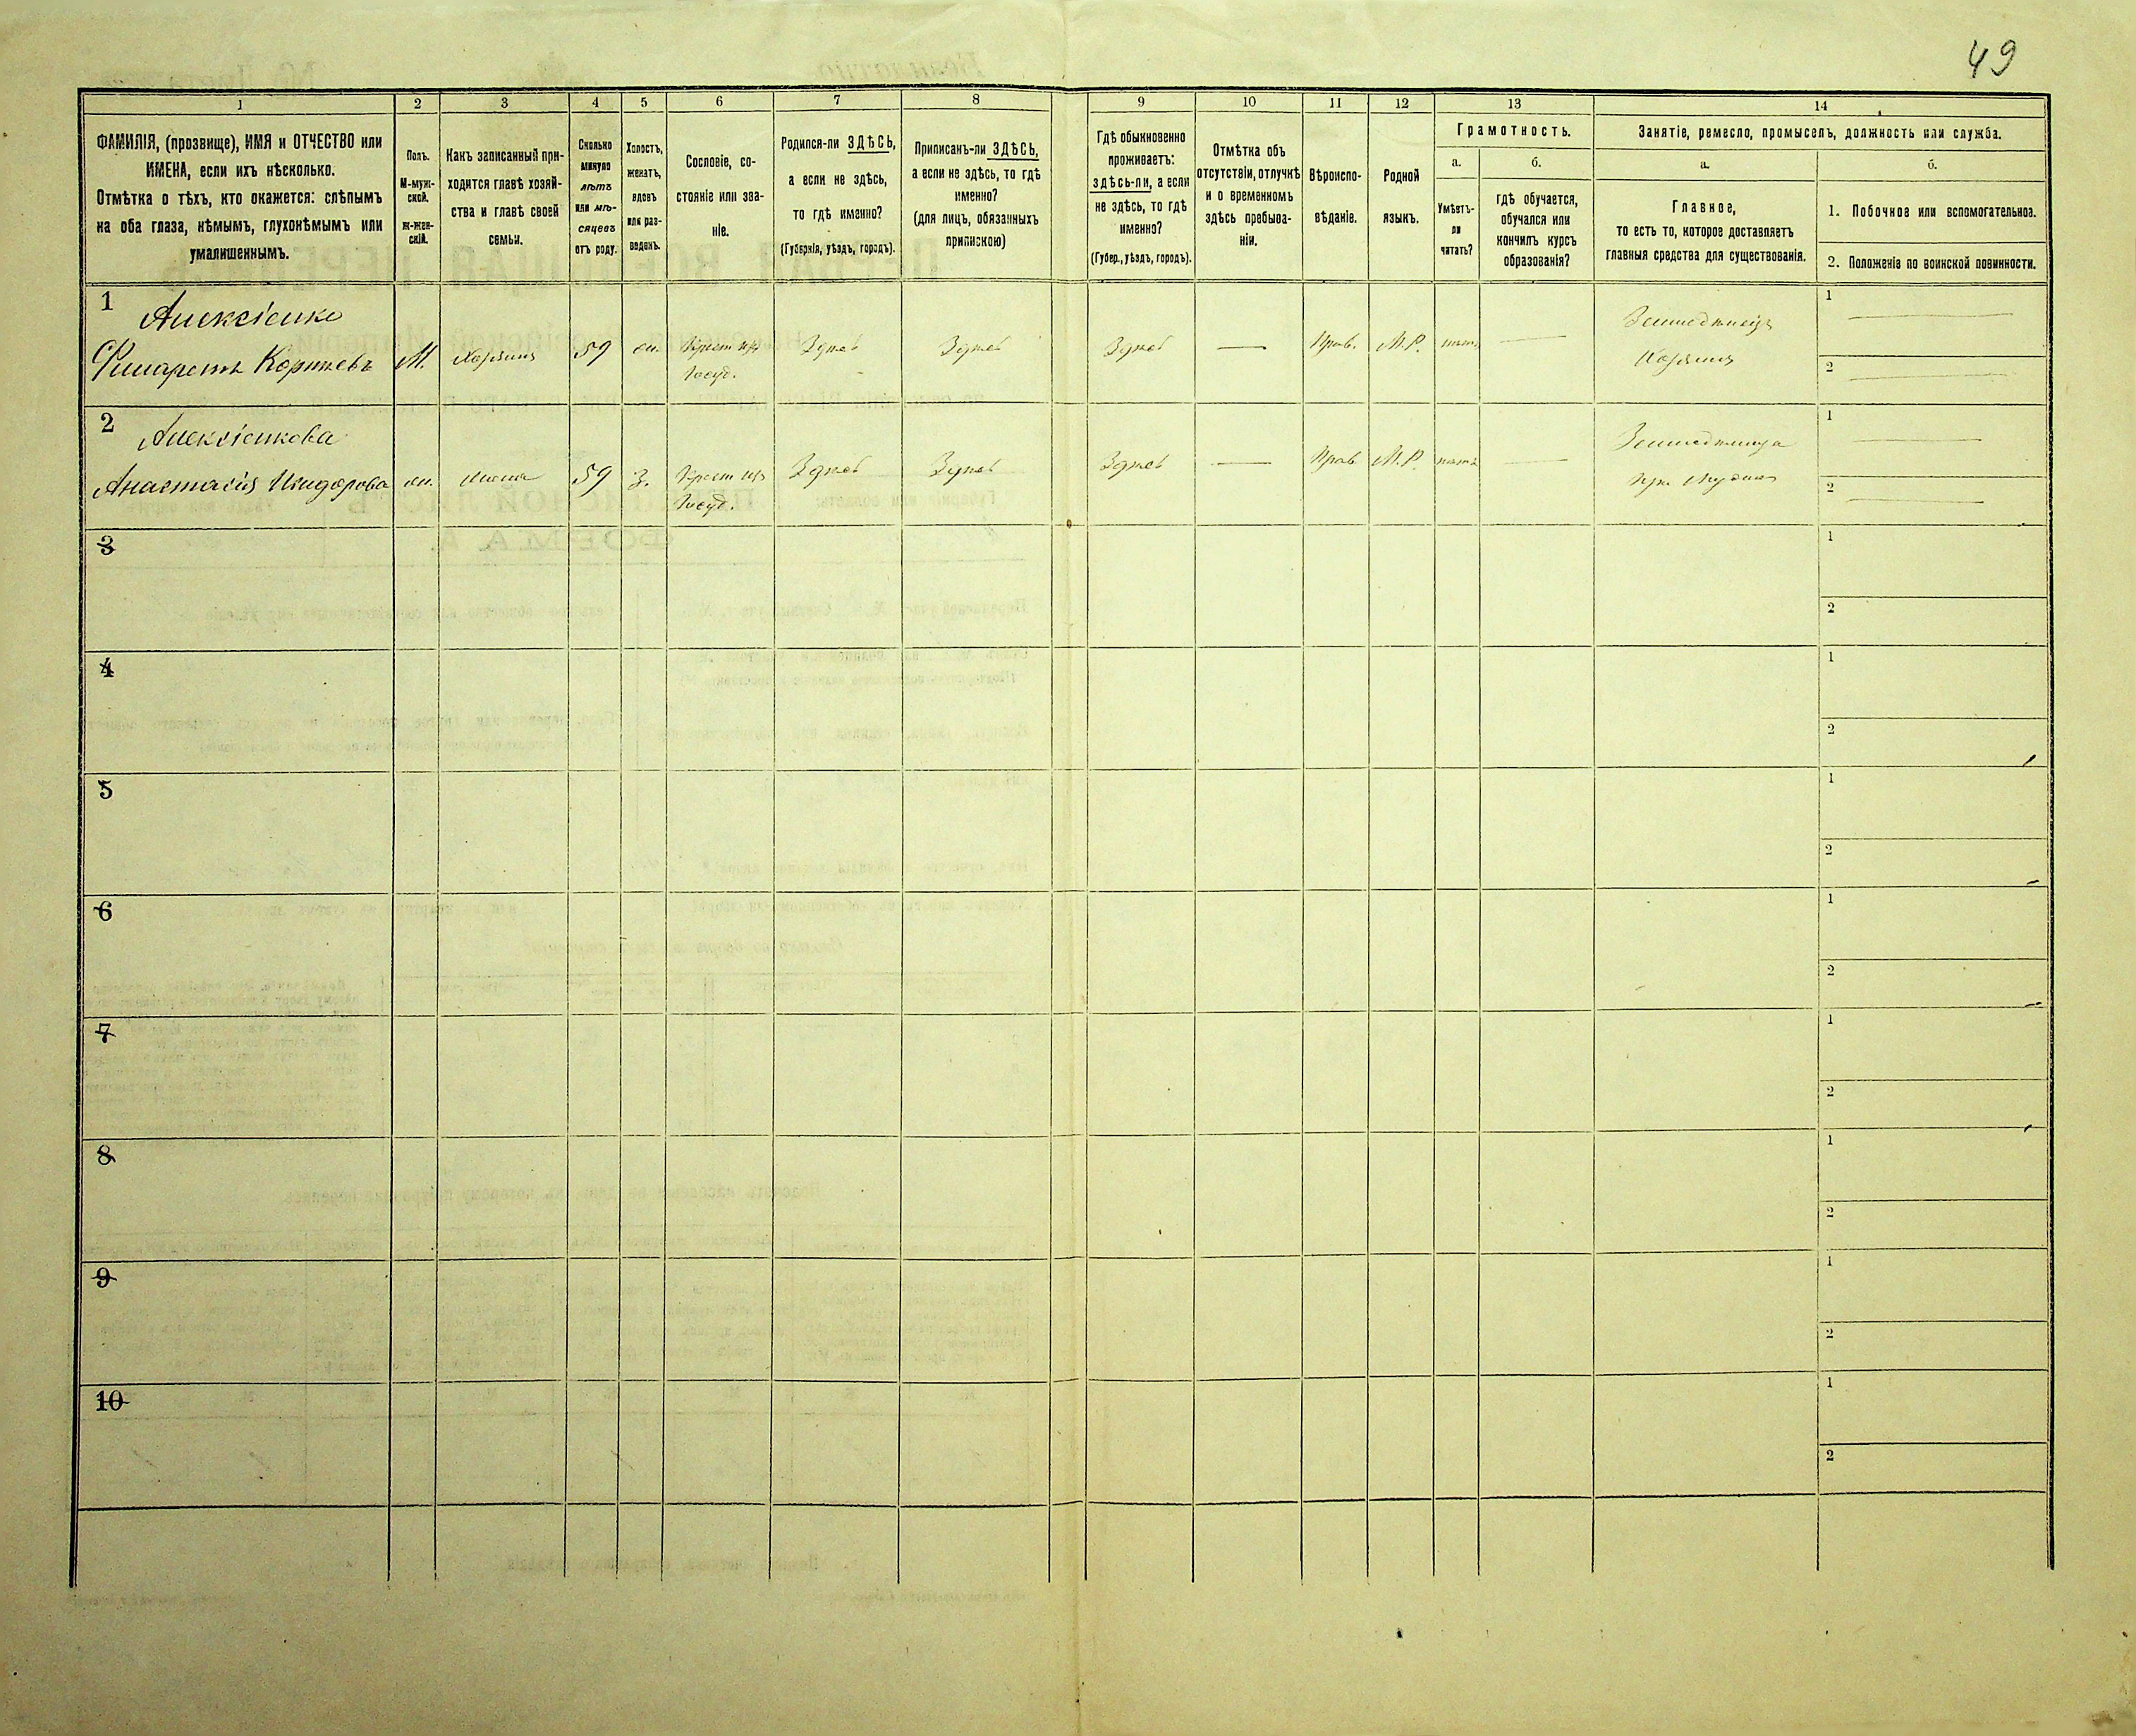 49
1
2
3
4
5
6
7
8
9
10
11
12
13
14
ФАМИЛІЯ, (прозвище), ИМЯ и ОТЧЕСТВО или
ИМЕНА, если ихъ нѣсколько.
Отмѣтка о тѣхъ, кто окажется: слѣпымъ
на оба глаза, нѣмымъ, глухонѣмымъ или
умалишеннымъ.
Полъ.
М-муж-
ской.
ж-жен-
скій.
Какъ записанный при-
ходится главѣ хозяй-
ства и главѣ своей
семьи.
Сколько
минуло
лѣтъ
или мѣ-
сяцевъ
отъ роду.
Холостъ,
женатъ,
вдовъ
или раз-
веденъ.
Сословіе, со-
стояніе или зва-
ніе.
Родился-ли ЗДѢСЬ,
а если не здѣсь,
то гдѣ именно?
(Губернія, уѣздъ, городъ).
Приписанъ-ли ЗДѢСЬ,
а если не здѣсь, то гдѣ
именно?
(для лицъ, обязанныхъ
припискою)
Гдѣ обыкновенно
проживаетъ:
здѣсь-ли, а если
не здѣсь, то гдѣ
именно?
(Губер., уѣздъ, городъ).
Отмѣтка объ
отсутствіи, отлучкѣ
и о временномъ
здѣсь пребыва-
ніи.
Вѣроиспо-
вѣданіе.
Родной
языкъ.
Грамотность.
а.
Умѣетъ-
ли
читать?
б.
гдѣ обучается,
обучался или
кончилъ курсъ
образованія?
Занятіе, ремесло, промыселъ, должность или служба.
а.
Главное,
то есть то, которое доставляетъ
главныя средства для существованія.
б.
1. Побочное или вспомогательное.
2. Положеніе по воинской повинности.
1
Алексіенко
Филаретъ Корнѣевъ
М.
Хозяинъ
59
ж.
Крест. изъ
Госуд.
Здѣсь
Здѣсь
Здѣсь
—
Прав.
М.Р.
нѣтъ
—
Земледѣлецъ
Хозяинъ
1
—
2
—
2
Алексіенкова
Анастасія Исидорова
ж.
жена
59
З.
Крест. изъ
Госуд.
Здѣсь
Здѣсь
Здѣсь
—
Прав.
М.Р.
нѣтъ
—
Земледѣлица
при мужѣ
1
—
2
—
3
1
2
4
1
2
5
1
2
6
1
2
7
1
2
8
1
2
9
1
2
10
1
2